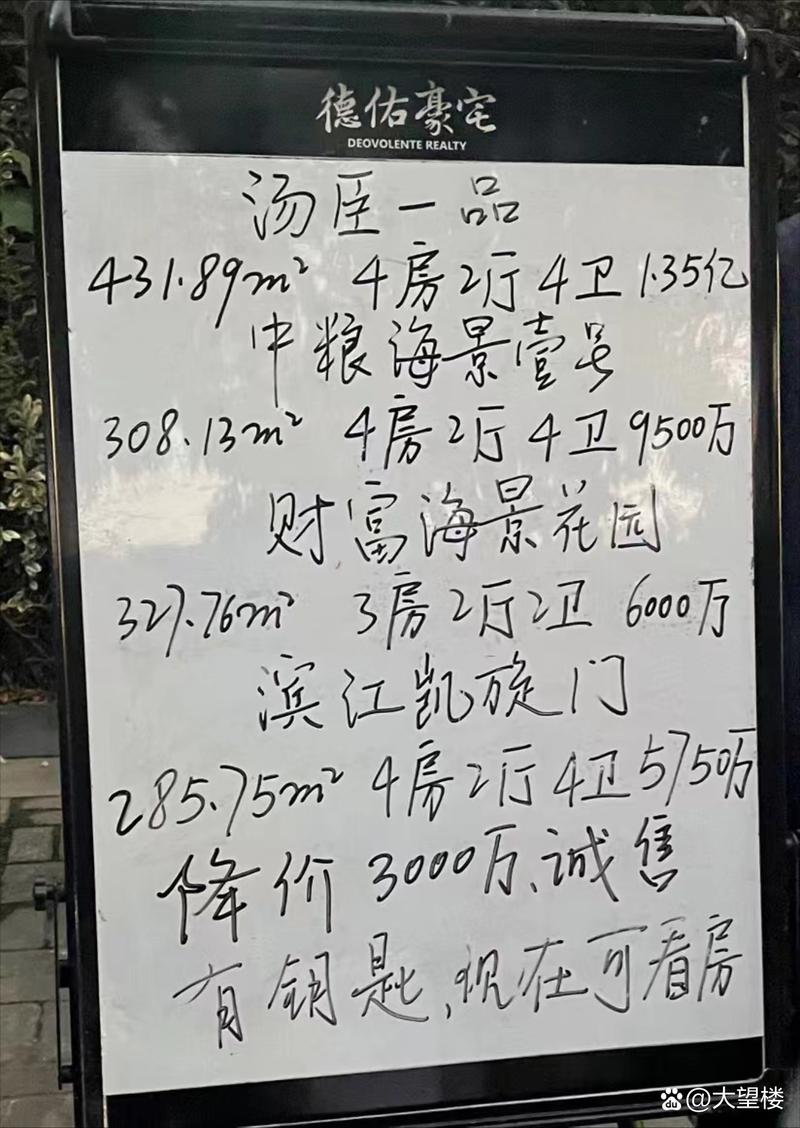 德佑豪宅
DEOVOLENTE REALTY
汤臣一品
431.89m² 4房2厅4卫 1.35亿
中粮海景壹号
308.13m² 4房2厅4卫 9500万
财富海景花园
327.76m² 3房2厅2卫 6000万
滨江凯旋门
285.75m² 4房2厅4卫 5750万
降价3000万、诚售
有钥匙,现在可看房
Baidu @大望楼